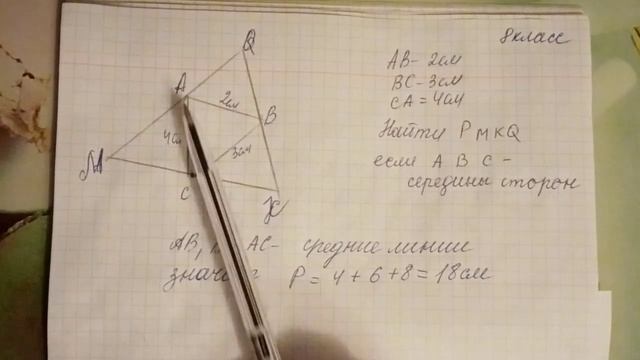 8класс
Q
A
2см
B
4см
3см
M
C
K
AB- 2см
BC- 3см
CA = 4см
Найти P MKQ
если A B C -
середины сторон
AB, AC- средние линии
P = 4 + 6 + 8 = 18см